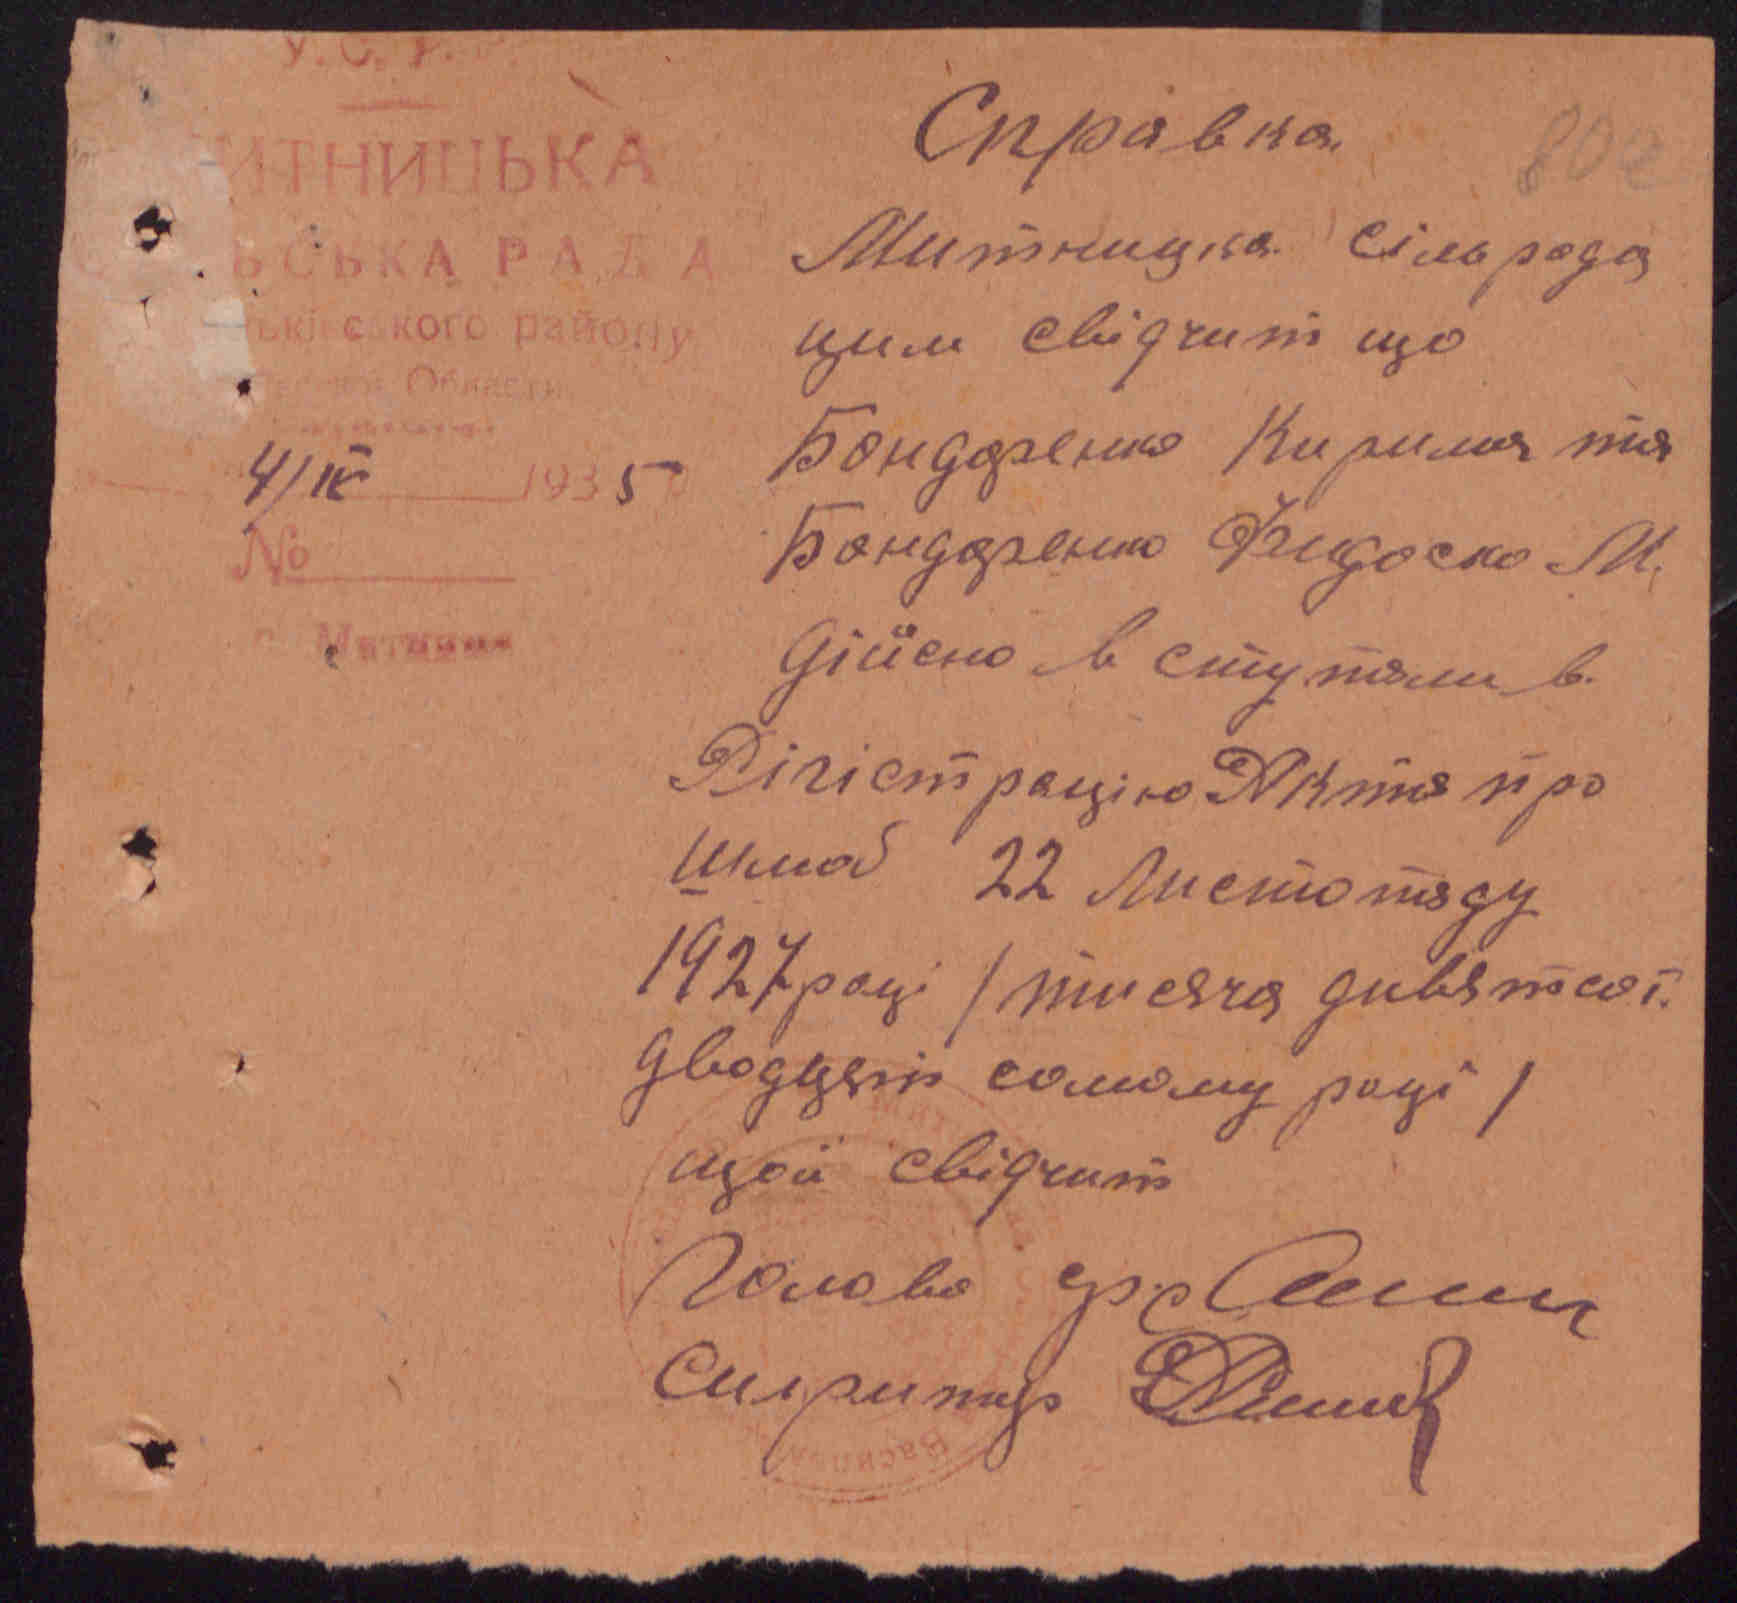 У.С.Р.Р.
ИТНИЦЬКА
ЬСЬКА РАДА
ького району
Области
4/IV 1935
№
Митниця
Справка
802
Митницка сільрада
цим свідчит що
Бондаренко Кирима та
Бондаренко Фидоско М.
дійсно в ступали в
Рігістрацію Акта про
шлюб 22 Листопаду
1927 році / тисяча дивятсот.
двадцят сомому році /
щой свідчит
Голова с/р
Сикритар
Васильк